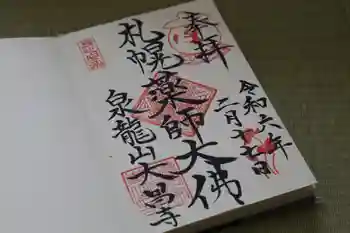 奉拝
令和六年
二月十七日
札幌薬師大佛
泉龍山大昌寺